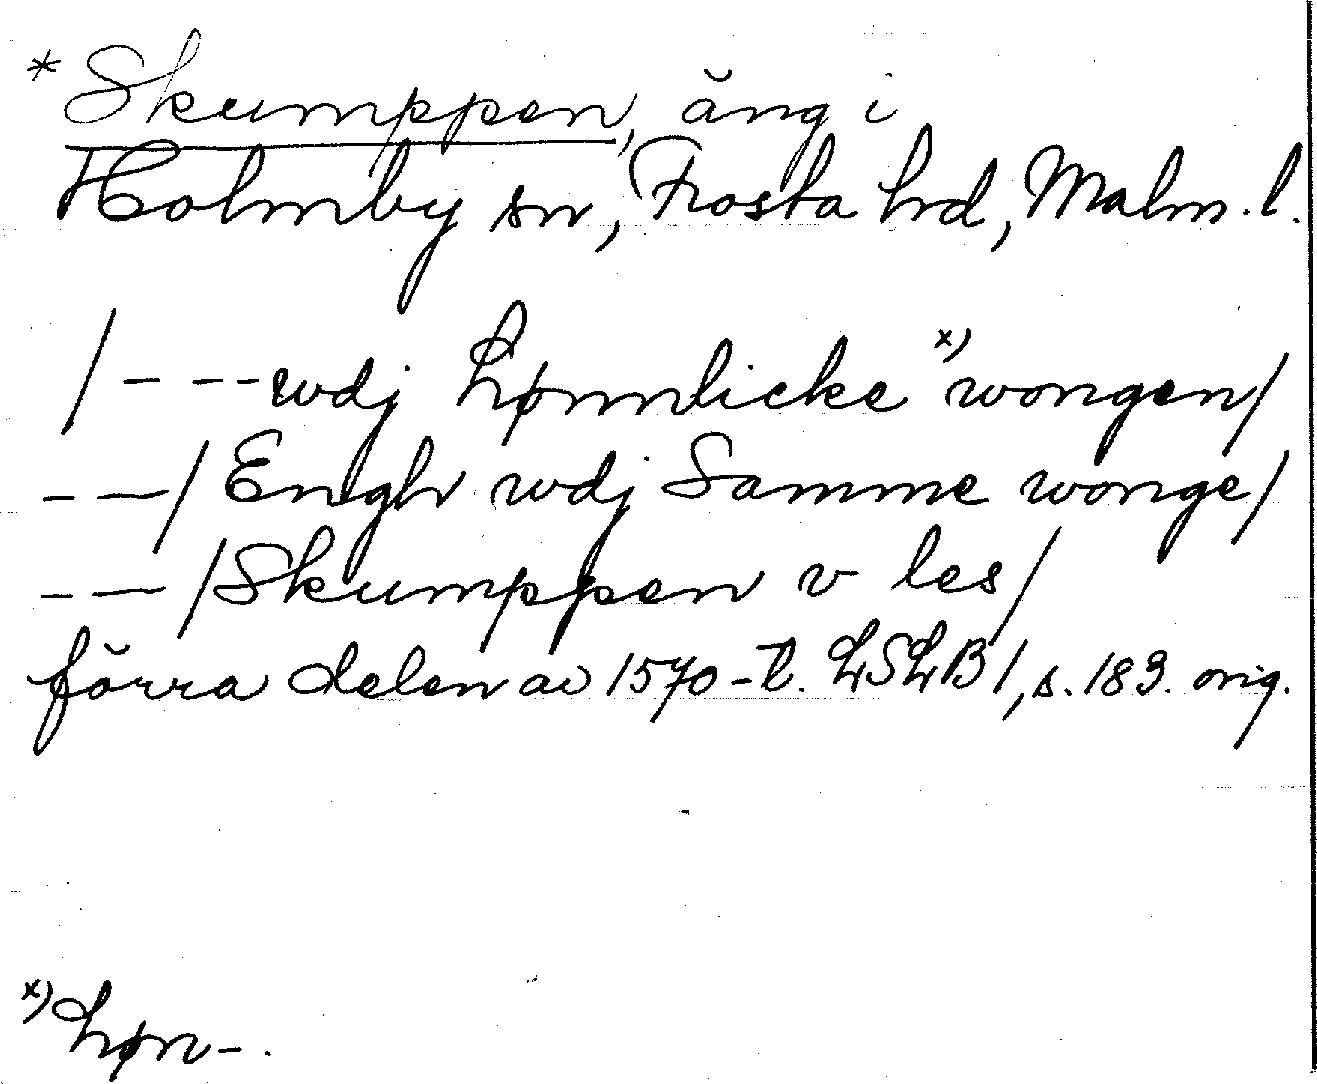 * Skumppen, äng i
Holmby sn, Frosta hrd, Malm. l.
/ - - - wdj hønnlicke x) wongen/
- - / Engh wdj Samme wonge/
- - / Skumppen v les /
förra delen av 1570-t. LSLB 1, s. 183. orig.
x) høn-.